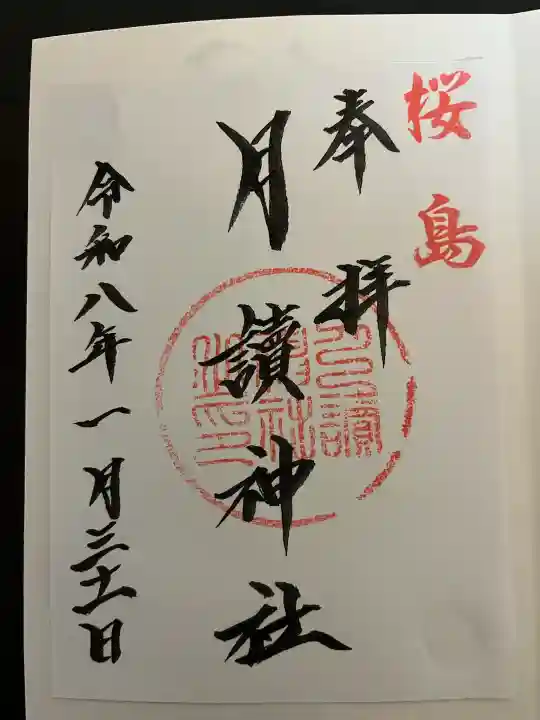 桜島
奉拝
月讀神社
令和八年一月三十一日
月讀神社之印